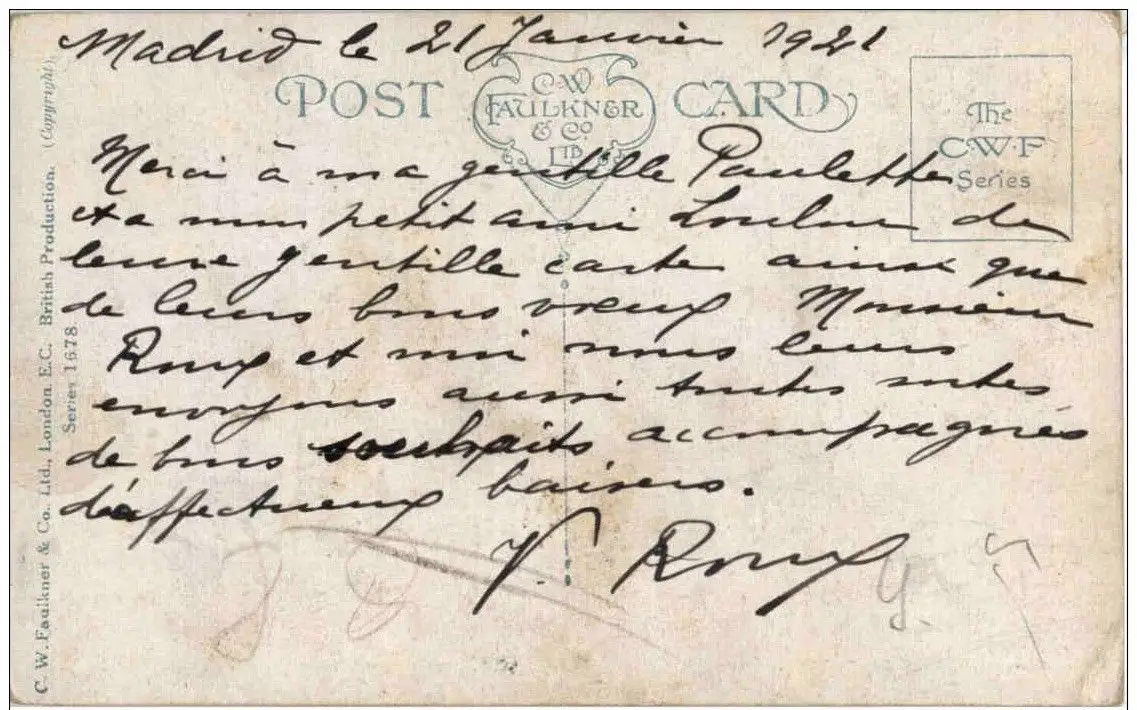 Madrid le 21 Janvier 1921
POST CARD
C.W
FAULKNER
& Co
LTD
The
C.W.F
Series
Merci à ma gentille Paulette
et a mon petit ami Loulou de
leure gentille carte ainsi que
de leurs bons vœux Monsieur
Roux et moi nous leurs
envoyons aussi toutes sortes
de bons souhaits accompagnés
d'affectueux baisers.
V. Roux
C. W. Faulkner & Co. Ltd., London. E.C. British Production. (Copyright).
Series 1678